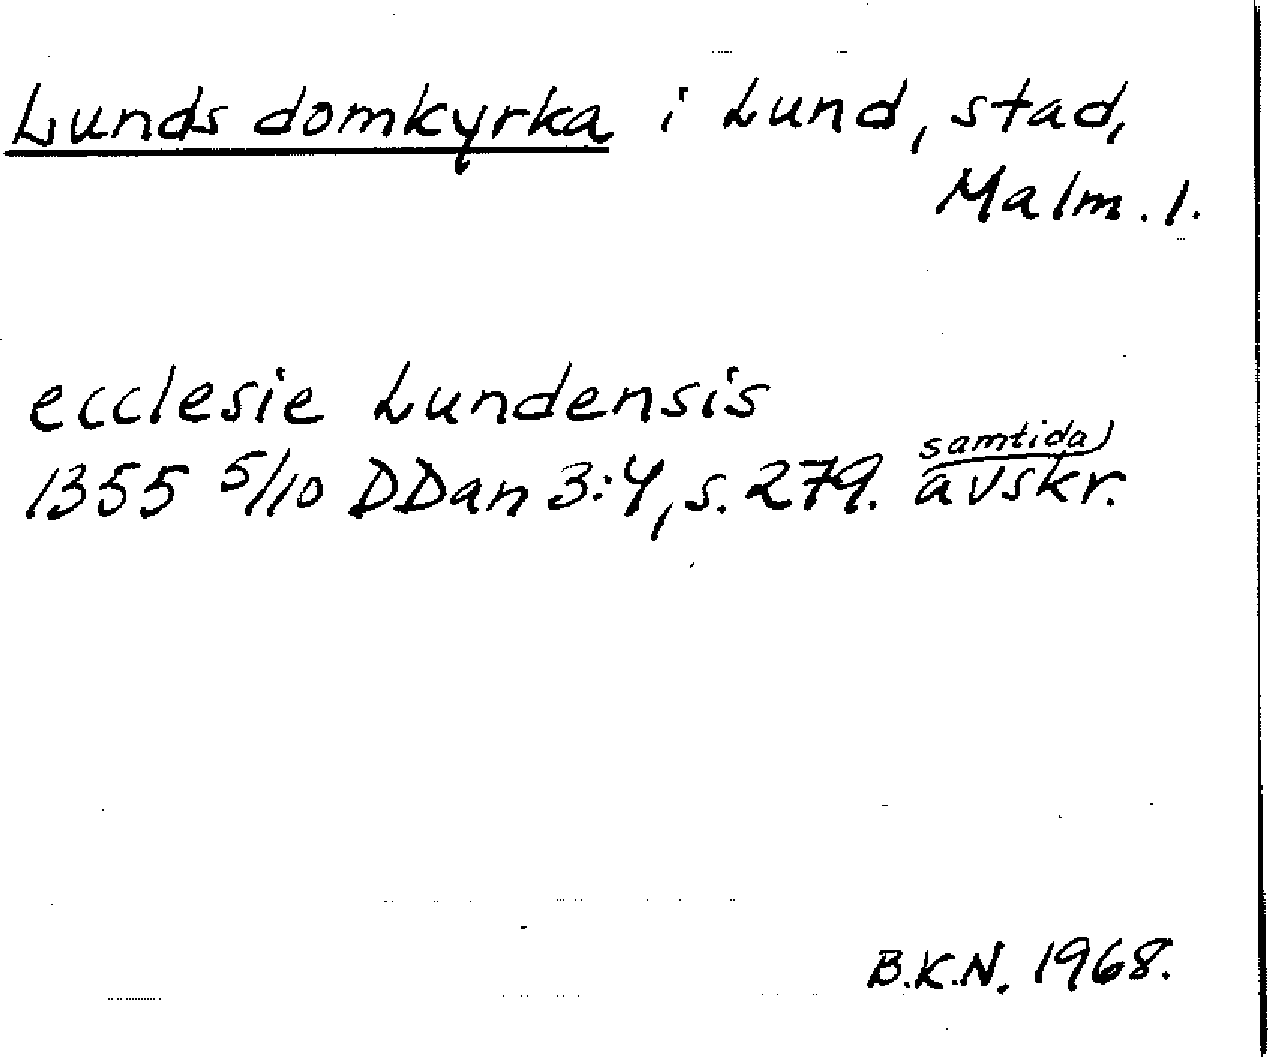 Lunds domkyrka i Lund, stad,
Malm. l.
ecclesie Lundensis
samtida)
1355 5/10 DDan 3:4, s. 279. avskr.
B.K.N. 1968.